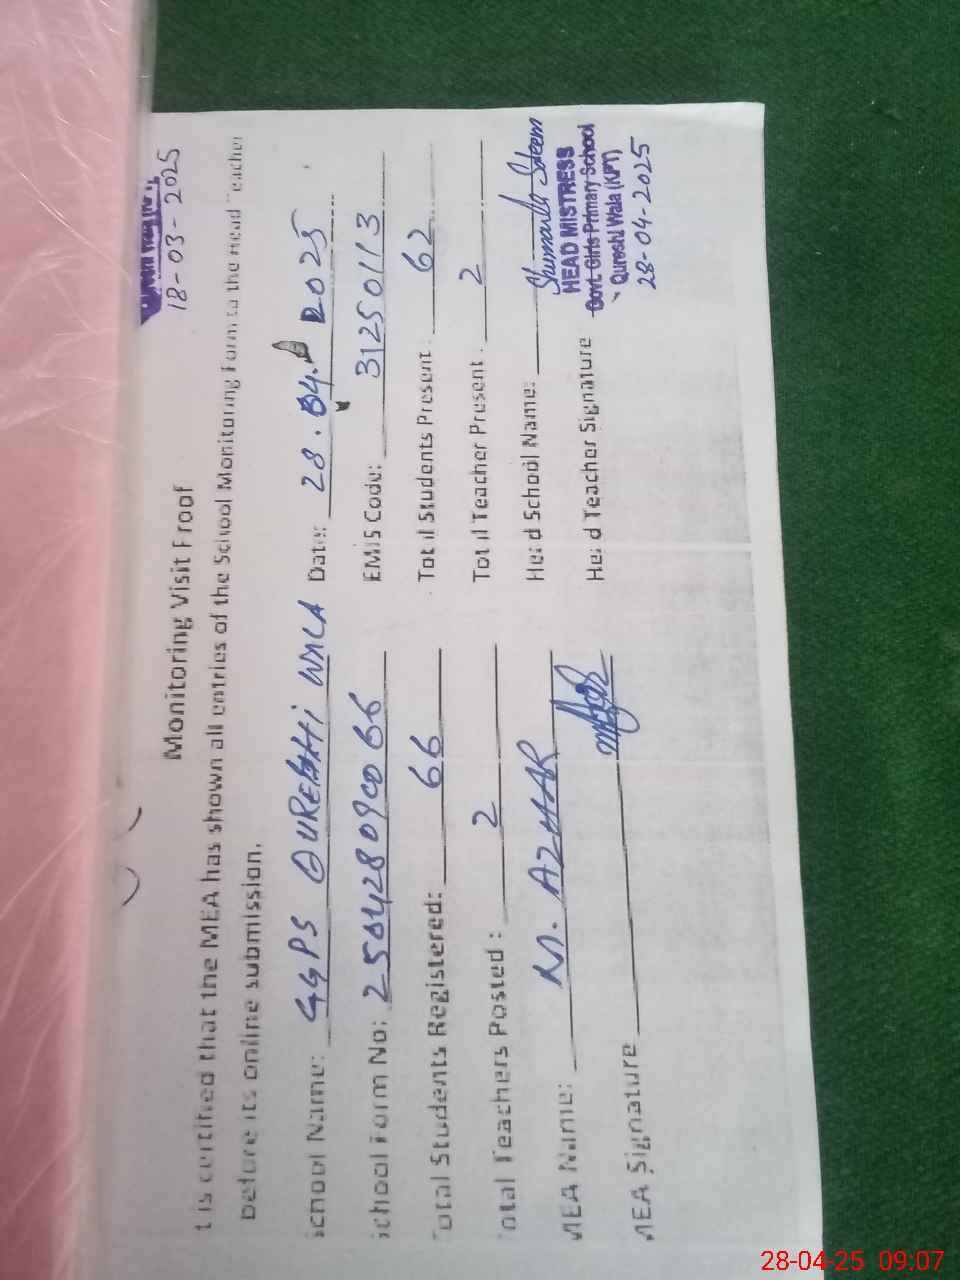 18-03-2025
Monitoring Visit Proof
t is certified that the MEA has shown all entries of the School Monitoring Form to the Head Teacher
before its online submission.
School Name: GGPS QURESHI WALA Date: 28.04.2025
School Form No: EMIS Code: 31250113
Total Students Registered: 66 Total Students Present: 62
Total Teachers Posted: 2 Total Teacher Present: 2
MEA Name: M. AZHAR Head School Name: Shumaila Saleem
MEA Signature Head Teacher Signature
HEAD MISTRESS
Govt. Girls Primary School
Qureshi Wala (KPT)
28-04-2025
28-04-25 09:07